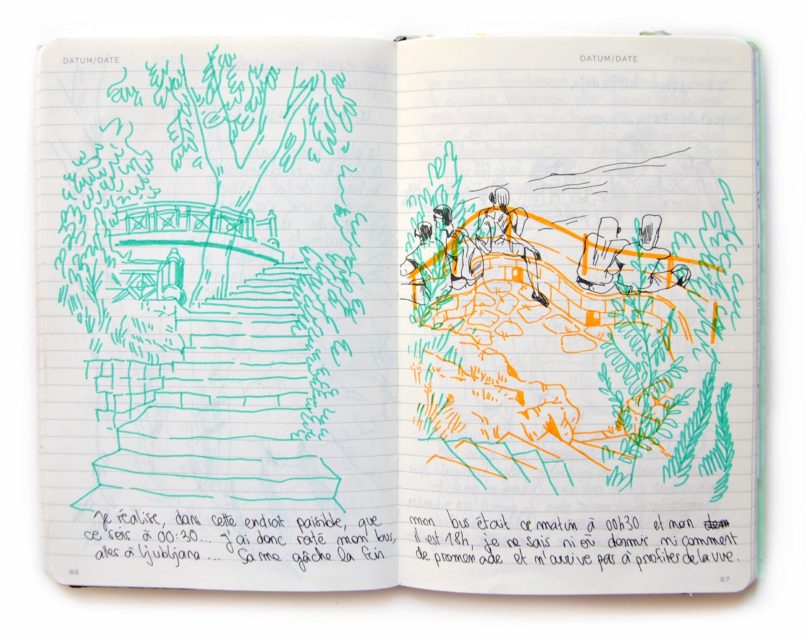 DATUM/DATE
DATUM/DATE
Je réalise, dans cette endroit paisible, que
mon bus était ce matin à 00h30 et non
ce soir à 00:30... j'ai donc raté mon bus,
il est 18h, je ne sais ni où dormir ni comment
ales à ljubljana.... Sa me gâche la fin
de promenade et n'arrive pas à profiter de la vue.
86
87